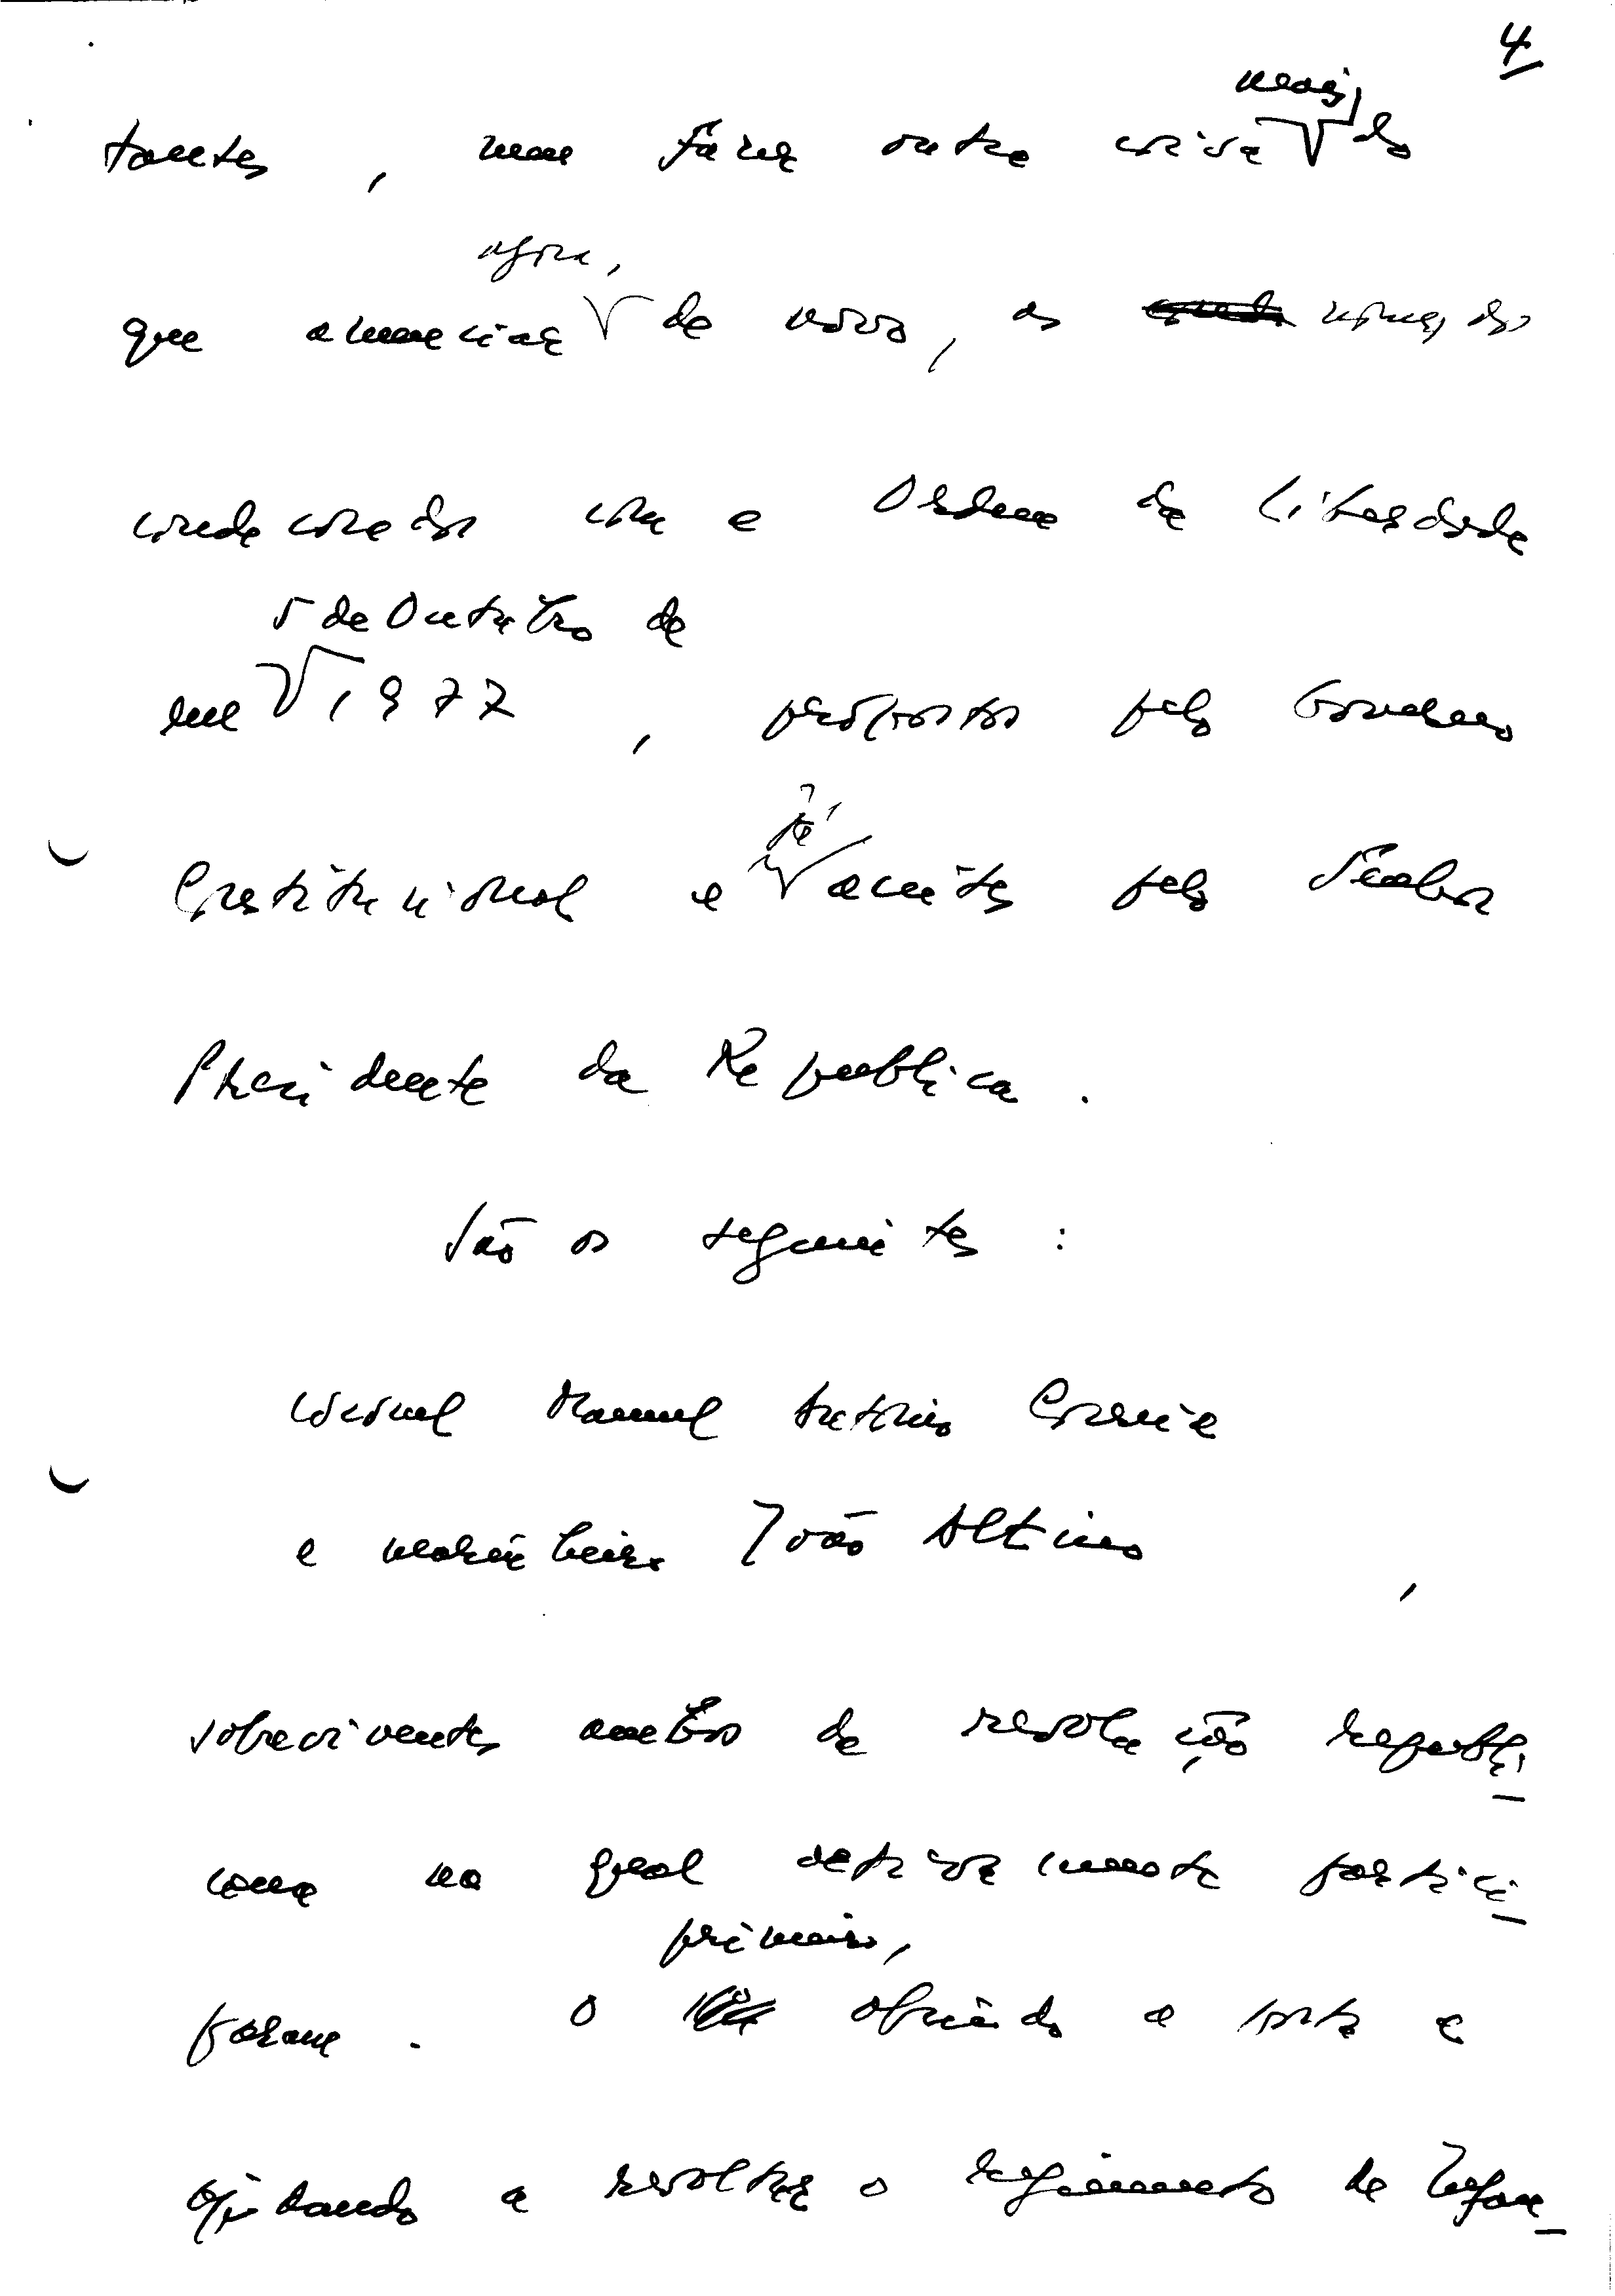 4
mais,
tantes, nem fazer outra coisa do
agora,
que anunciar de novo, os nomes dos
condecorados com a Ordem da Liberdade
5 de Outubro de
em 1977, propostos pelo Governo
já
Constitucional e aceites pelo Senhor
Presidente da Republica.
São os seguintes:
coronel Manuel António Correia
e marinheiro João Altino,
sobreviventes ambos da revolução republi
cana na qual activamente partici
primeiro,
param. O oficial do e corta e
ajudando a revoltar o regimento de Infan_